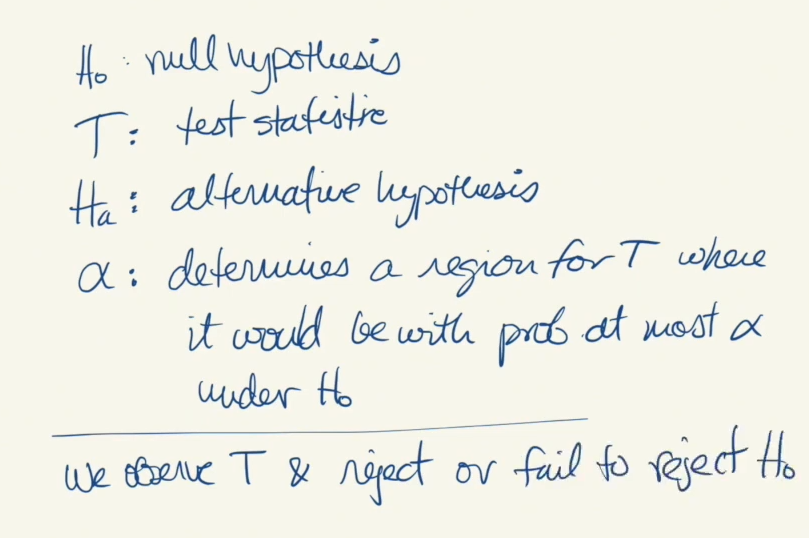 H₀: null hypothesis
T: test statistic
Hₐ: alternative hypothesis
α: determines a region for T where
it would be with prob at most α
under H₀
we observe T & reject or fail to reject H₀